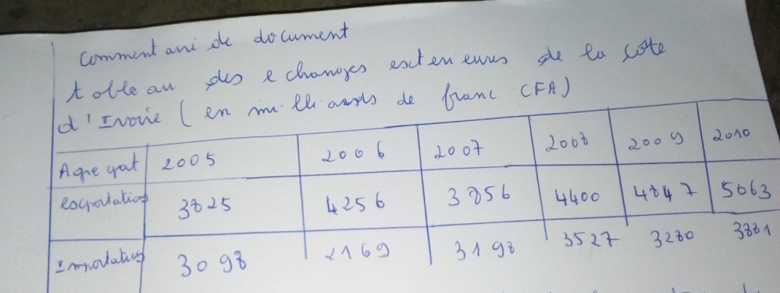 Commentaire de document
tableau des echanges exterieures de la cote
d'Ivoire (en milliards de franc CFA)
Agregat 2005 2006 2007 2008 2009 2010
exportation 3825 4256 3856 4400 4847 5063
Importation 3098 2169 3198 3527 3280 3881